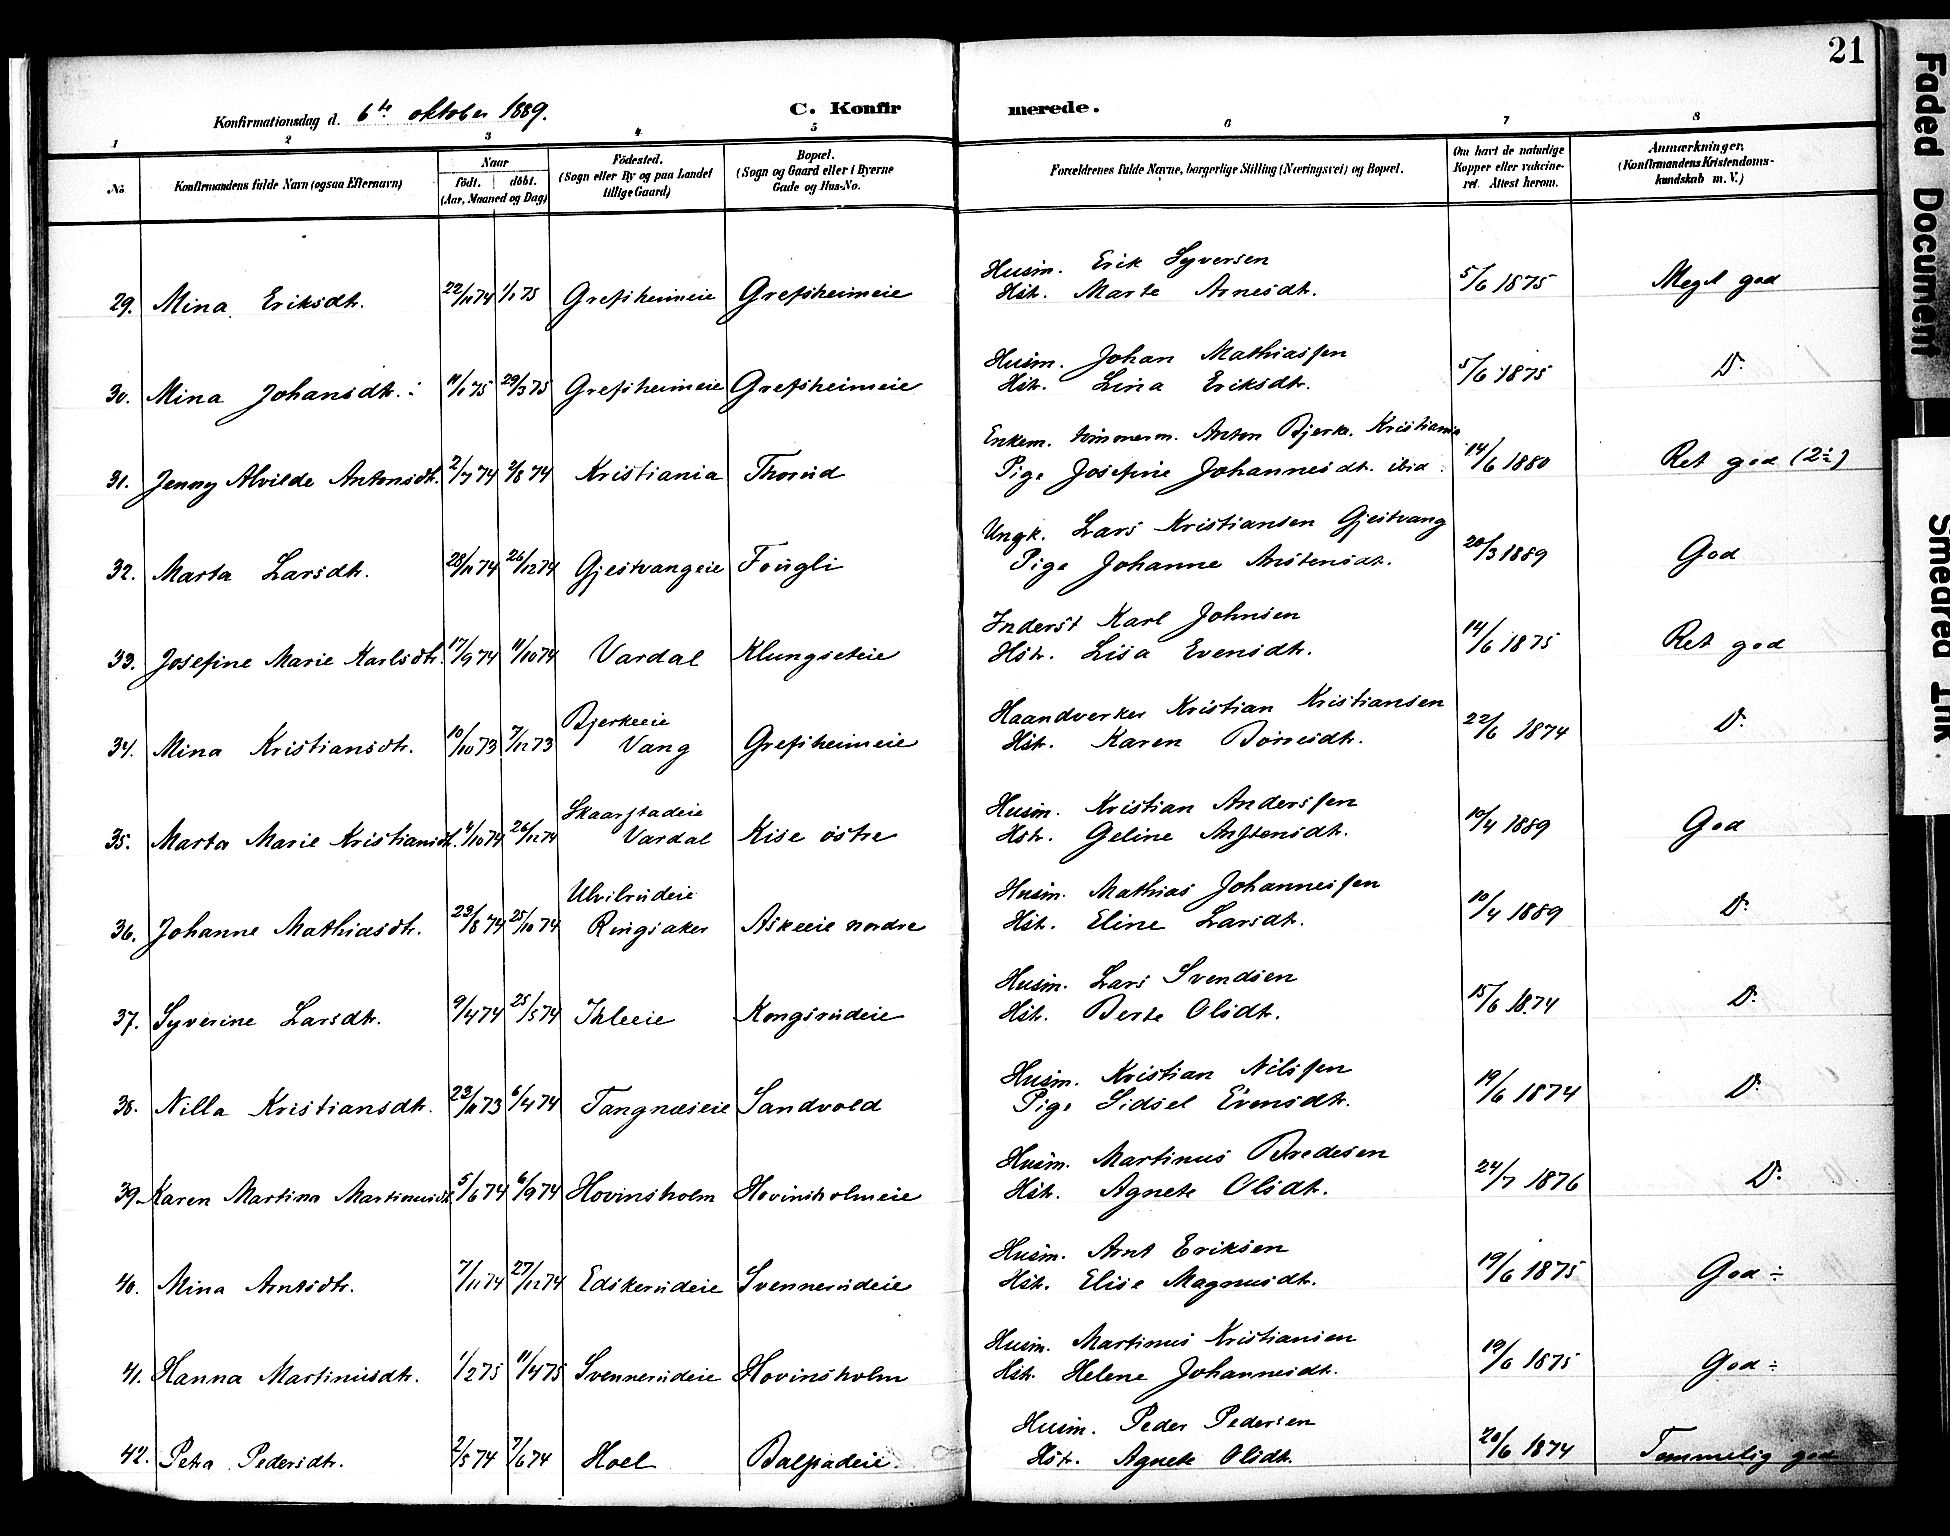 21
Konfirmationsdag d. 6te oktober 1889.
C. Konfirmerede.
1 2 3 4 5 6 7 8
No
Konfirmandens fulde Navn (ogsaa Efternavn)
Naar
født. døbt.
(Aar, Maaned og Dag)
Fødested.
(Sogn eller By og paa Landet
tillige Gaard)
Bopæl.
(Sogn og Gaard eller i Byerne
Gade og Hus-No.
Forældrenes fulde Navne, borgerlige Stilling (Næringsvei) og Bopæl.
Om havt de naturlige
Kopper eller vakcine-
ret. Attest herom.
Anmærkninger.
(Konfirmandens Kristendoms-
kundskab m. V.)
Husm. Erik Syversen
29. Mina Eriksdtr. 22/11 74 1/1 75 Grefsheimeie Grefsheimeie Hstr. Marte Arnesdtr. 5/6 1875 Meget god
Husm. Johan Mathiassen
30. Mina Johansdtr. 11/1 75 29/3 75 Grefsheimeie Grefsheimeie Hstr. Lina Eriksdtr. 5/6 1875 D:
Enkem. tømmerm. Anton Bjerke. Kristiania
31. Jenny Alvilde Antonsdtr. 2/7 74 2/8 74 Kristiania Thorud Pige Josefine Johannesdtr. ibid. 14/6 1880 Ret god (2÷)
Ungk. Lars Kristiansen Gjestvang
32. Marta Larsdtr. 28/11 74 26/12 74 Gjestvangeie Fougli Pige Johanne Anstensdtr. 20/3 1889 God
Inderst Karl Johnsen
33. Josefine Marie Karlsdtr. 17/9 74 11/10 74 Vardal Klungseteie Hstr. Lisa Evensdtr. 14/6 1875 Ret god
Bjerkeeie Haandverker Kristian Kristiansen
34. Mina Kristiansdtr. 10/10 73 7/12 73 Vang Grefsheimeie Hstr. Karen Børresdtr. 22/6 1874 D:
Skaarstadeie Husm. Kristian Anderssen
35. Marta Marie Kristiansdtr. 4/10 74 26/12 74 Vardal Kise østre Hstr. Geline Anstensdtr. 10/4 1889 God
Ulvilrudeie Husm. Mathias Johannessen
36. Johanne Mathiasdtr. 23/8 74 25/10 74 Ringsaker Askeeie nordre Hstr. Eline Larsdtr. 10/4 1889 D:
Husm. Lars Svendsen
37. Syverine Larsdtr. 9/4 74 25/5 74 Ihleeie Kongsrudeie Hstr. Berte Olsdtr. 15/6 1874 D:
Husm. Kristian Nilssen
38. Nilla Kristiansdtr. 23/11 73 6/4 74 Tangnæseie Sandvold Pige Sidsel Evensdtr. 19/6 1874 D:
Husm. Martinus Bredesen
39. Karen Martina Martinusdtr. 5/6 74 6/9 74 Hovinsholm Hovinsholmeie Hstr. Agnete Olsdtr. 24/7 1876 D:
Husm. Arnt Eriksen
40. Mina Arntsdtr. 7/11 74 27/12 74 Edskerudeie Svennerudeie Hstr. Elise Magnusdtr. 19/6 1875 God ÷
Husm. Martinus Kristiansen
41. Hanna Martinusdtr. 1/2 75 11/4 75 Svennerudeie Hovinsholm Hstr. Helene Johannesdtr. 19/6 1875 God ÷
Husm. Peder Pedersen
42. Petra Pedersdtr. 2/5 74 7/6 74 Hoel Balpadeie Hstr. Agnete Olsdtr. 20/6 1874 Temmelig god
Faded Document
Smeared Ink